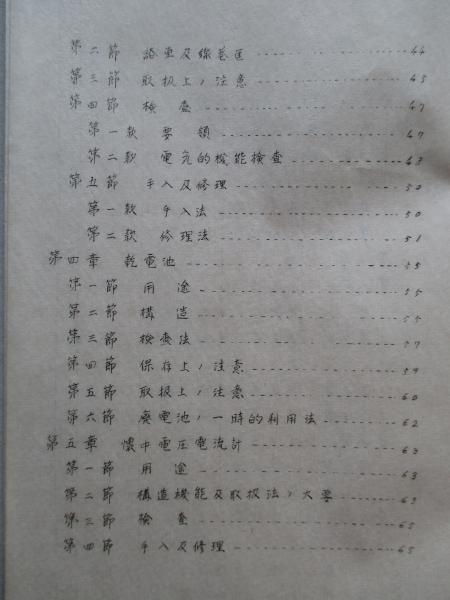 第二節 絡車及線巻匡 44
第三節 取扱上ノ注意 45
第四節 檢査 47
第一款 要領 47
第二款 電気的機能檢査 48
第五節 手入及修理 50
第一款 手入法 50
第二款 修理法 51
第四章 乾電池 55
第一節 用途 55
第二節 構造
第三節 檢査法 57
第四節 保存上ノ注意 59
第五節 取扱上ノ注意 60
第六節 廃電池ノ一時的利用法 62
第五章 懐中電圧電流計 63
第一節 用途 63
第二節 構造機能及取扱法ノ大要 63
第三節 檢査 65
第四節 手入及修理 65